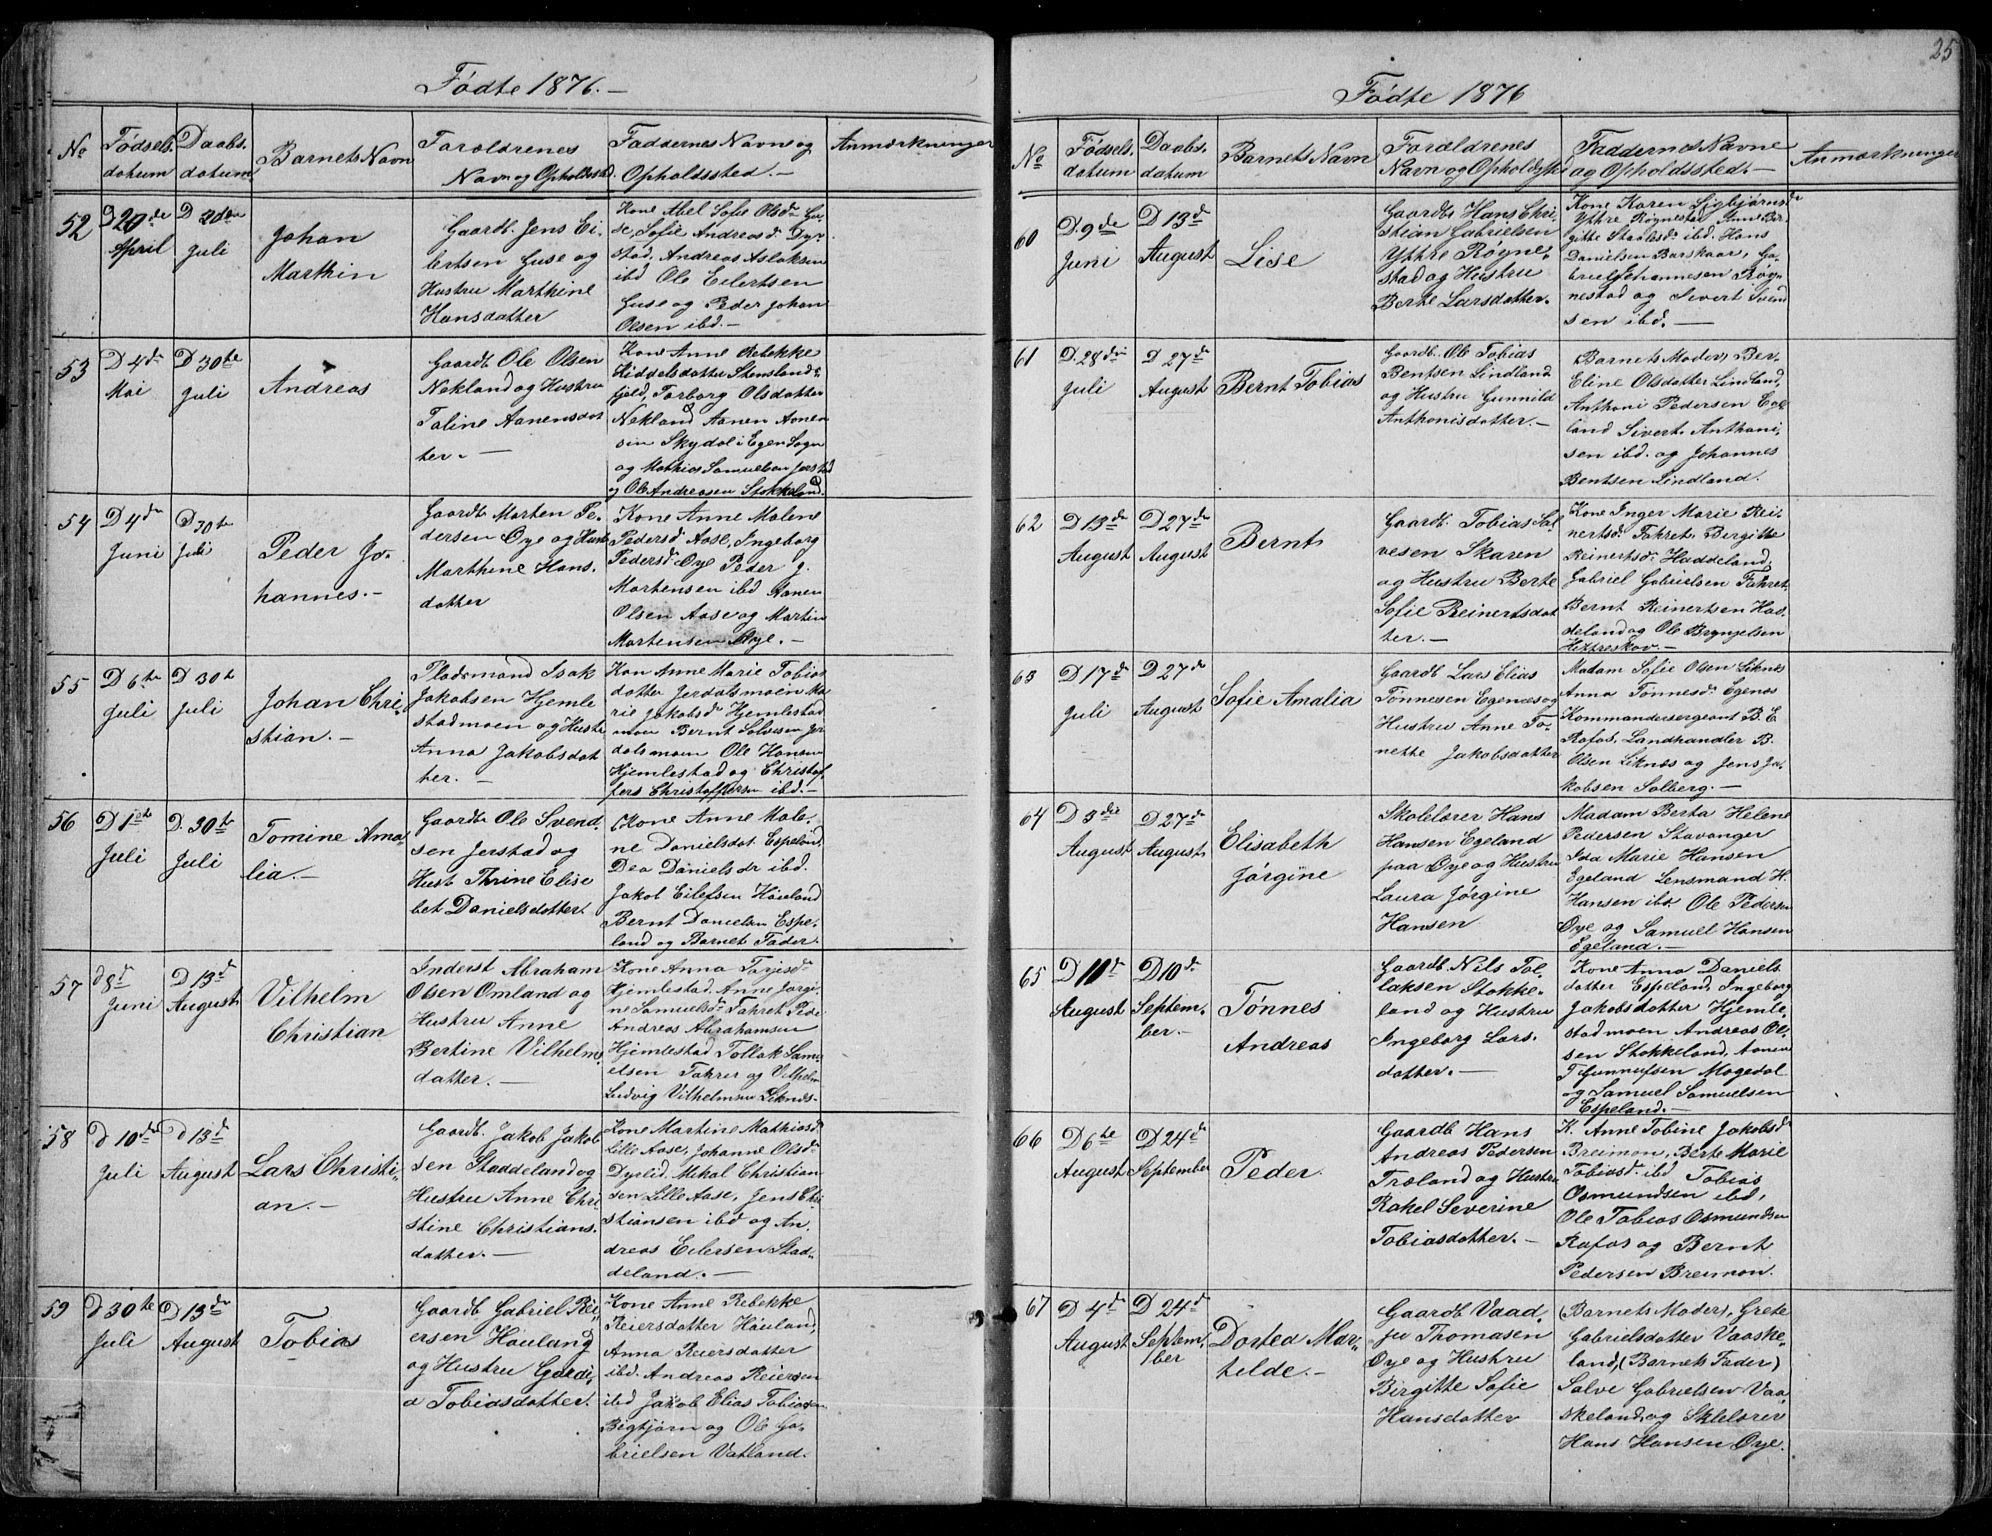 Fødte 1876. —
No
Fødsels
datum
Daabs
datum
Barnets Navn
Foroldrenes
Navn og Opholdsstd.
Faddernes Navne og
Opholdssted. —
Anmærkninger
52
D 20de
April
D 2den
Juli
Johan
Marthin
Gaardb. Jens Ei-
lertsen Guse og
Hustru Marthine
Hansdatter
Kone Abel Sofie Olsdr Gu-
se, Sofie Andreasdr Dyr-
stad, Andreas Aslaksen
ibd Ole Eilertsen
Guse og Peder Johan
Olsen ibd. —
53
D 4de
Mai
D 30te
Juli
Andreas
Gaardb. Ole Olsen
Nekland og Hustru
Taline Aanensdat
ter. —
Kone Anne Rebekke
Hiddelsdatter Stensland-
fjeld, Torborg Olsdatter
Nekland Aanen Aanen
sen Skydal i Egen Sogn
og Mathias Samuelsen Jerstad
og Ole Andreasen Stokkeland.
54
D 4de
Juni
D 30te
Juli
Peder Jo-
hannes. —
Gaardb. Morten Pe-
dersen Øye og Hust
Marthine Hans.
datter
Kone Anne Malene
Pedersdr Aase, Ingeborg
Pedersdr Øye Peder J.
Mortensen ibd Aanen
Olsen Aase og Martin
Mortensen Øye. —
55
D 6te
Juli
D 30te
Juli
Johan Chri-
stian. —
Pladsmand Isak
Jakobsen Hjemle
stadmoen og Hustr
Anna Jakobsdat
ter. —
Kon Anne Marie Tobias
datter Jerdalsmoen Ma
rie Jakobsdr Hjemlestad
moen Bernt Salvesen Jer
dalsmoen Ole Hansen
Hjemlestad og Christof-
fers Christoffersen ibd. —
56
D 1ste
Juli
D. 30te
Juli
Tomine Ama-
lia. —
Gaardb Ole Svend-
sen Jerstad og
Hust Thrine Elise
bet Danielsdatter.
Kone Anne Male-
ne Danielsdat. Espeland
Dea Daniels dr ibd.
Jakob Eilefsen Høieland
Bernt Danielsen Espe-
land og Barnets Fader.
57
d 8de
Juni
D 13de
August
Vilhelm
Christian
Inderst Abraham
Olsen Omland og
Hustru Anne
Bertine Vilhelm-
datter. —
Kone Anna Torjesdr
Hjemlestad. Anne Jorgi-
ne Samuelsdr Fahret
Andreas Abrahamsen
Hjemlestad Tollak Sam-
uelsen Fahret og Vilhelm
Ludvig Vilhelmsen Liknes-
58
d 10de
Juli
D 13de
August
Lars Christi-
an. —
Gaardb. Jakob Jakob
sen Staddeland og
Hustru Anne Chri
stine Christians.
datter. —
Kone Martine Mathiasdr
Lille Aase, Johanne Olsdr
Dyrlid. Mikal Christian
sen Lille Aase, Jens Chri
stiansen ibd og An.
dreas Eilersen Stad-
deland. —
59
d 30te
Juli
D 13de
August
Tobias
Gaardb Gabriel Rei-
ersen Houland
og Hustru Guri-
a Tobiasdatter.
Kone Anne Rebekke
Reiersdatter Houland,
Anna Reiersdatter
ibd. Andreas Reiersen
ibd Jakob Elias Tobiasen
Bigtjørn og Ole Ga-
brielsen Vatland.
25
Fødte 1876
No
Fødsels.
datum
Daabs.
datum
Barnets Navn
Forældrenes
Navn og Opholdsstd
Faddernes Navne
og Opholdssted. —
Anmærkninger
60
D. 9de
Juni
D 13de
August
Lise
Gaardb Hans Chri-
stian Gabrielsen
Yttre Røgne-
stad og Hustru
Berte Larsdatter.
Kone Karen Sigbjørnsdr
Yttre Røgnestad Anne Ber
gitte Staalesdr ibd. Hans
Danielsen Barskaar, Ga-
briel Johannesen Røg-
nestad og Sivert Svend
sen ibd. —
61
D. 28de
Juli
D 27de
August
Bernt Tobias
Gaardb. Ole Tobias
Bentsen Lindland
og Hustru Gunnild
Anthonisdatter. —
Barnets Moder, Ber-
Eline Olsdatter Lindland,
Anthoni Pedersen Ege
land Sivert Anthoni-
sen ibd. og Johannes
Bentsen Lindland.
62
D 13de
August
D 27de
August
Bernt
Gaardb. Tobias Sal
vesen Skaren
og Hustru Berte
Sofie Reinertsdat
ter. —
Kone Inger Marie Rei-
nertsdr Fahret, Bergitte
Reinertsdr Haddeland,
Gabriel Gabrielsen Fahret
Bernt Reinertsen Had-
deland og Ole Brynjelsen
Hettreskov. —
63
D 17de
Juli
D 27de
August
Sofie Amalia
Gaardb Lars Elias
Tønnesen Egenæs og
Hustru Anne To-
nette Jakobsdatter
Madam Sofie Olsen Liknes
Anna Tønnesdr Egenæs
Kommandersergeant B. E
Rafos, Landhandler B.
Olsen Liknæs og Jens Ja-
kobsen Solberg. —
64
D 3die
August
D 27de
August
Elisabeth
Jørgine
Skolelærer Hans
Hansen Egeland
paa Øye og Hustru
Laura Jørgine
Hansen
Madam Berta Helene
Pedersen Stavanger
Ida Marie Hansen
Egeland Lensmand H.
Hansen ibd Ole Pedersen
Øye og Samuel Hansen
Egeland. —
65
D 11te
August
D 10de
Septem-
ber. —
Tønnes
Andreas
Gaardb. Nils Tol-
laksen Stokke-
land og Hustru
Ingeborg Lars.
datter. —
Kone Anna Daniels
datter Espeland, Ingeborg
Jakobsdatter Hjemle-
stadmoen Andreas Ol-
sen Stokkeland, Aanen
T Gunnufsen Mogedal
og Samuel Samuelsen
Espeland. —
66
D 6te
August
D 24de
September
Peder.
Gaardb Hans
Andreas Pedersen
Træland og Hustru
Rakel Severine
Tobiasdatter. —
K. Anne Tobine Jakobsdr
Breimon, Berte Marie
Tobiasdr ibd Tobias
Osmundsen ibd,
Ole Tobias Osmundsen
Rafos og Bernt
Pedersen Breimon.
67
D 4de
August
D 24de
Septem-
ber
Dorted Mar-
telde. —
Gaardb Vaad-
ju Thomasen
Øye og Hustru
Birgitte Sofie
Hansdatter
(Barnets Moder), Grete
Gabrielsdatter Vaaske-
land, (Barnets Fader)
Salve Gabrielsen Vaa
skeland, og Sklelærer
Hans Hansen Øye.